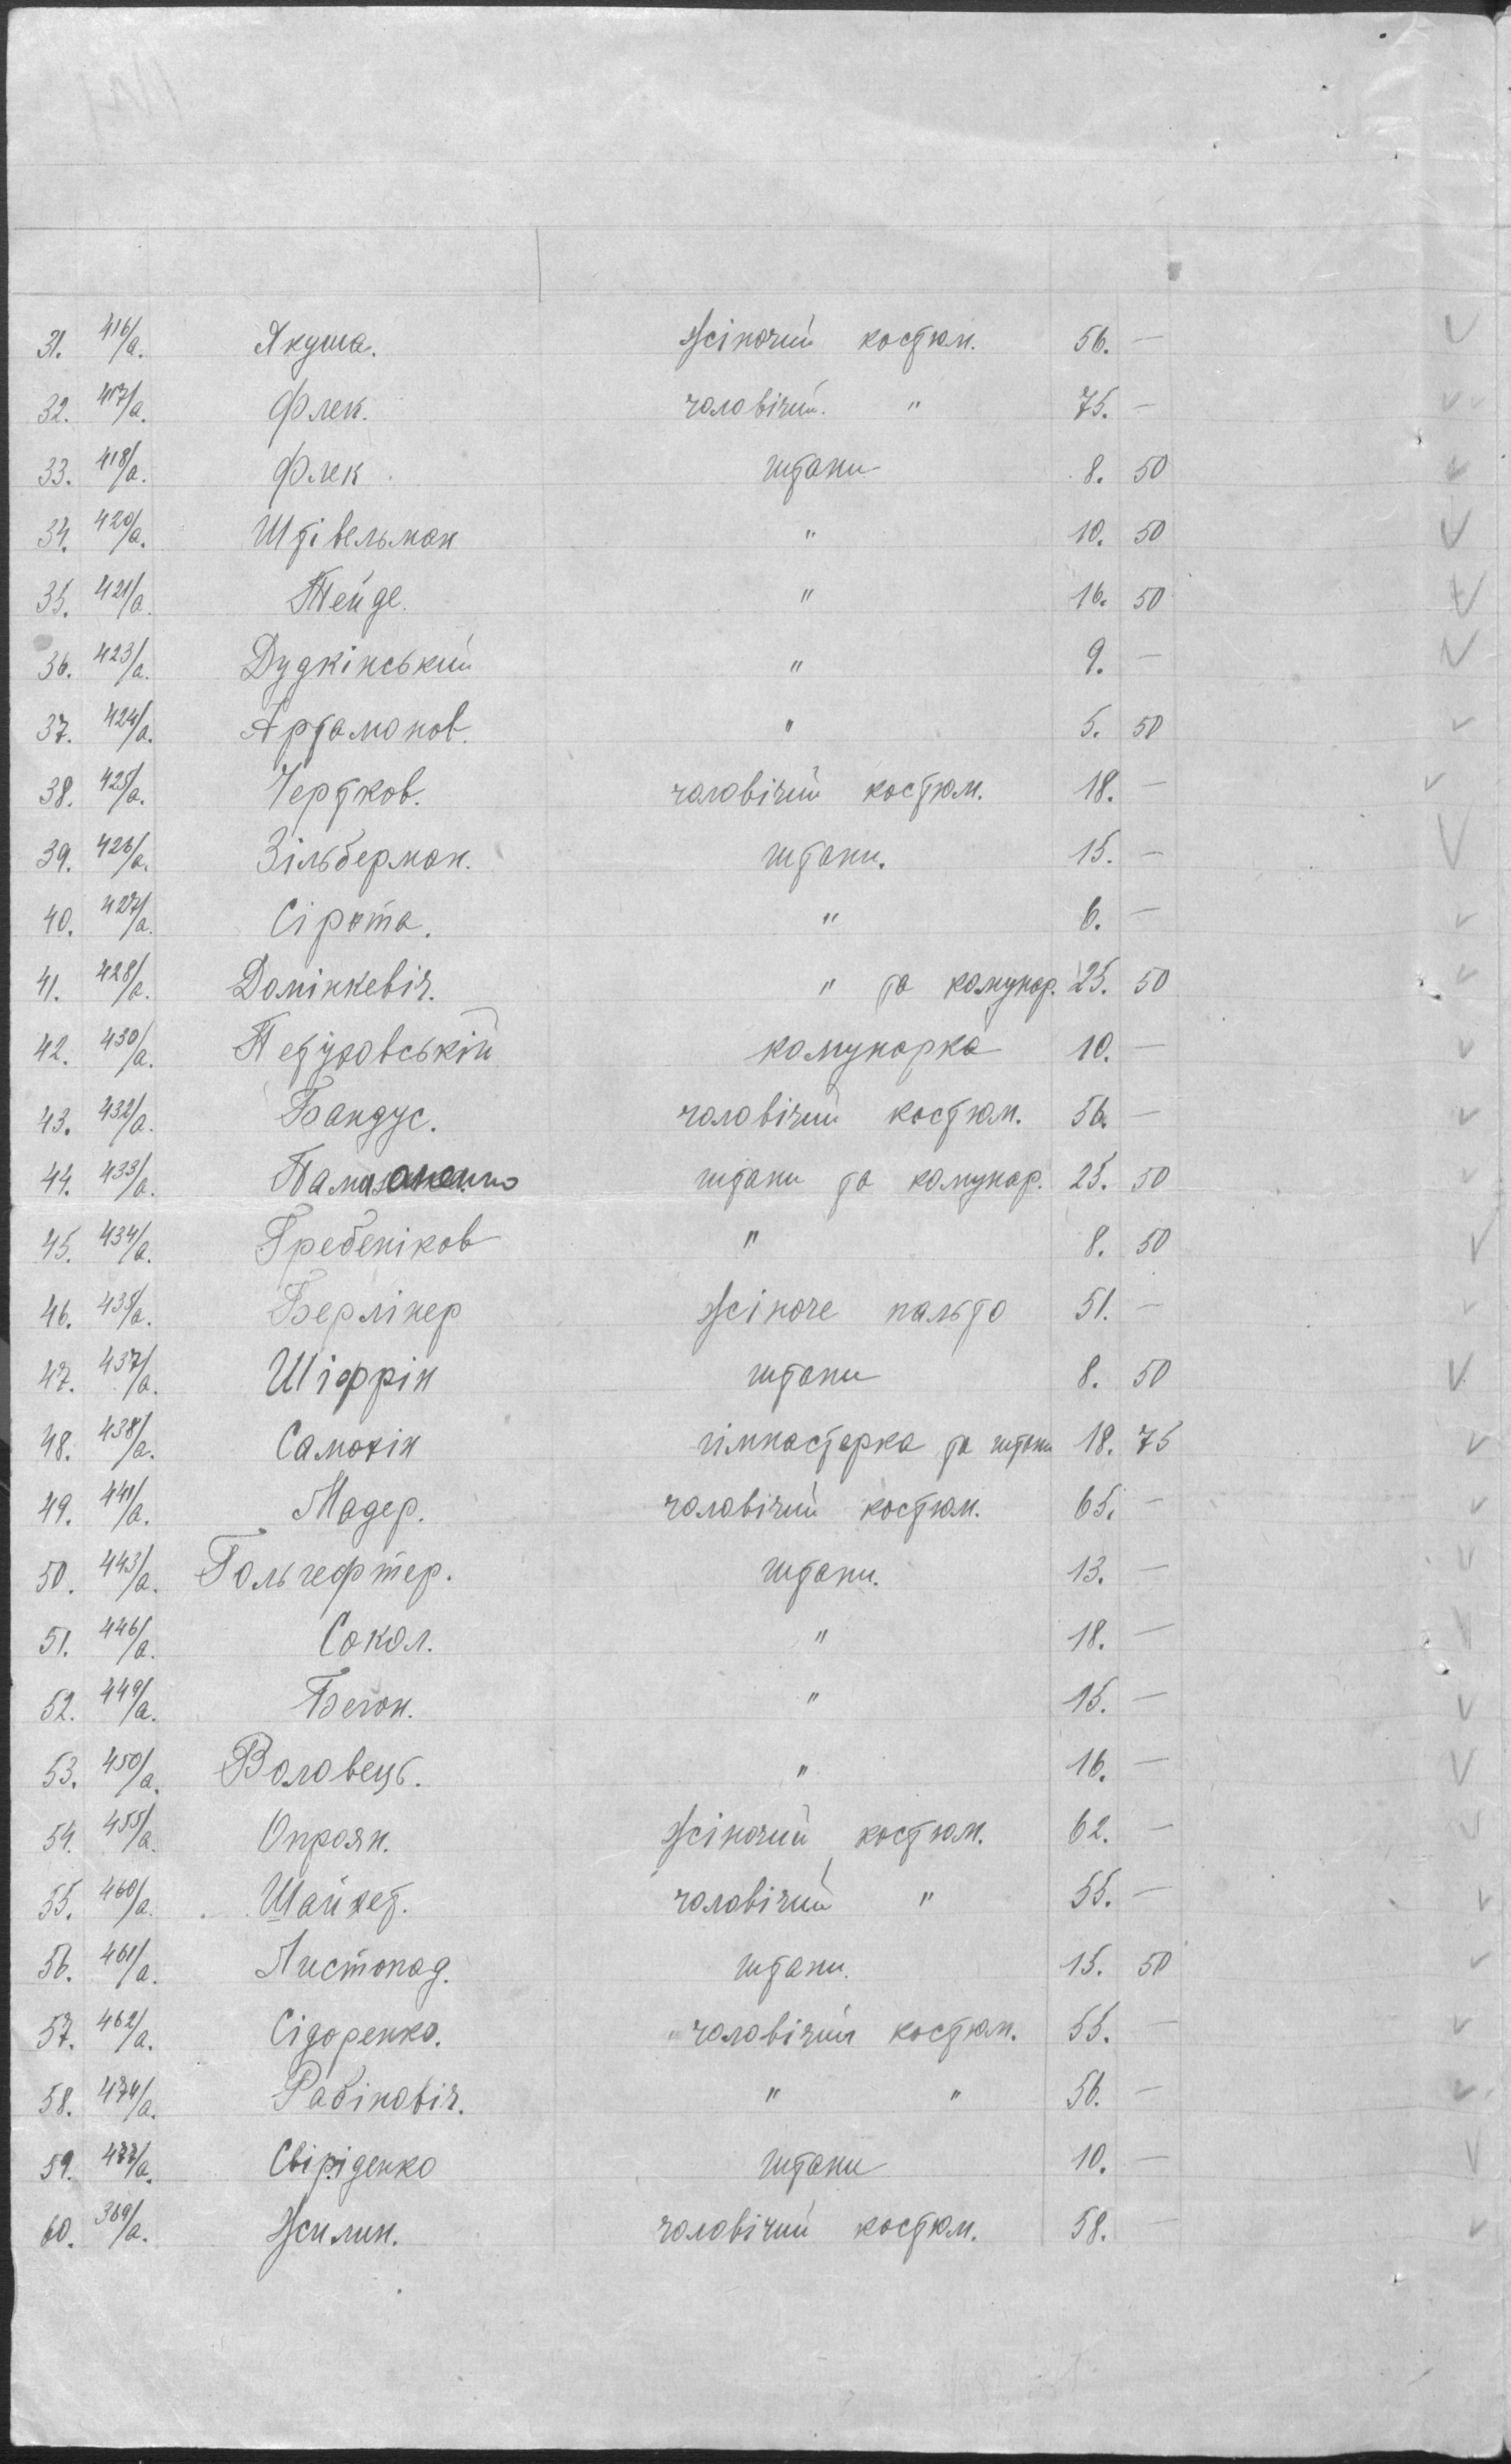 31. 416/а. Якуша. жіночий костюм. 56. —
32. 417/а. Флек. чоловічий. " 75. —
33. 418/а. Флек. штани 8. 50
34. 420/а. Штівельман " 10. 50
35. 421/а. Тейде. " 16. 50
36. 423/а. Дудкінський " 9. —
37. 424/а. Артамонов. " 5. 50
38. 425/а. Чертков. чоловічий костюм. 18. —
39. 426/а. Зільберман. штани. 15. —
40. 427/а. Сірота. " 6. —
41. 428/а. Домінкевіч. " та комунар. 25. 50
42. 430/а. комунарка 10. —
43. 432/а. Бандус. чоловічий костюм. 56. —
44. 433/а. штани та комунар. 25. 50
45. 434/а. Гребеніков " 8. 50
46. 435/а. Берлінер жіноче пальто 51. —
47. 437/а. Шіфрін штани 8. 50
48. 438/а. Самохін гімнастерка та штани 18. 75
49. 441/а. Мадер. чоловічий костюм. 65. —
50. 443/а. Гольгефтер. штани. 13. —
51. 446/а. Сокол. " 18. —
52. 449/а. Бегон. " 15. —
53. 450/а. Воловець. " 16. —
54. 455/а. Опроян. жіночий костюм. 62. —
55. 460/а. Шайхет. чоловічий " 55. —
56. 461/а. Листопад. штани. 15. 50
57. 462/а. Сідоренко. чоловічий костюм. 55. —
58. 474/а. Рабіновіч. " " 56. —
59. 477/а. Свіріденко штани 10. —
60. 369/а. Жилин. чоловічий костюм. 58. —